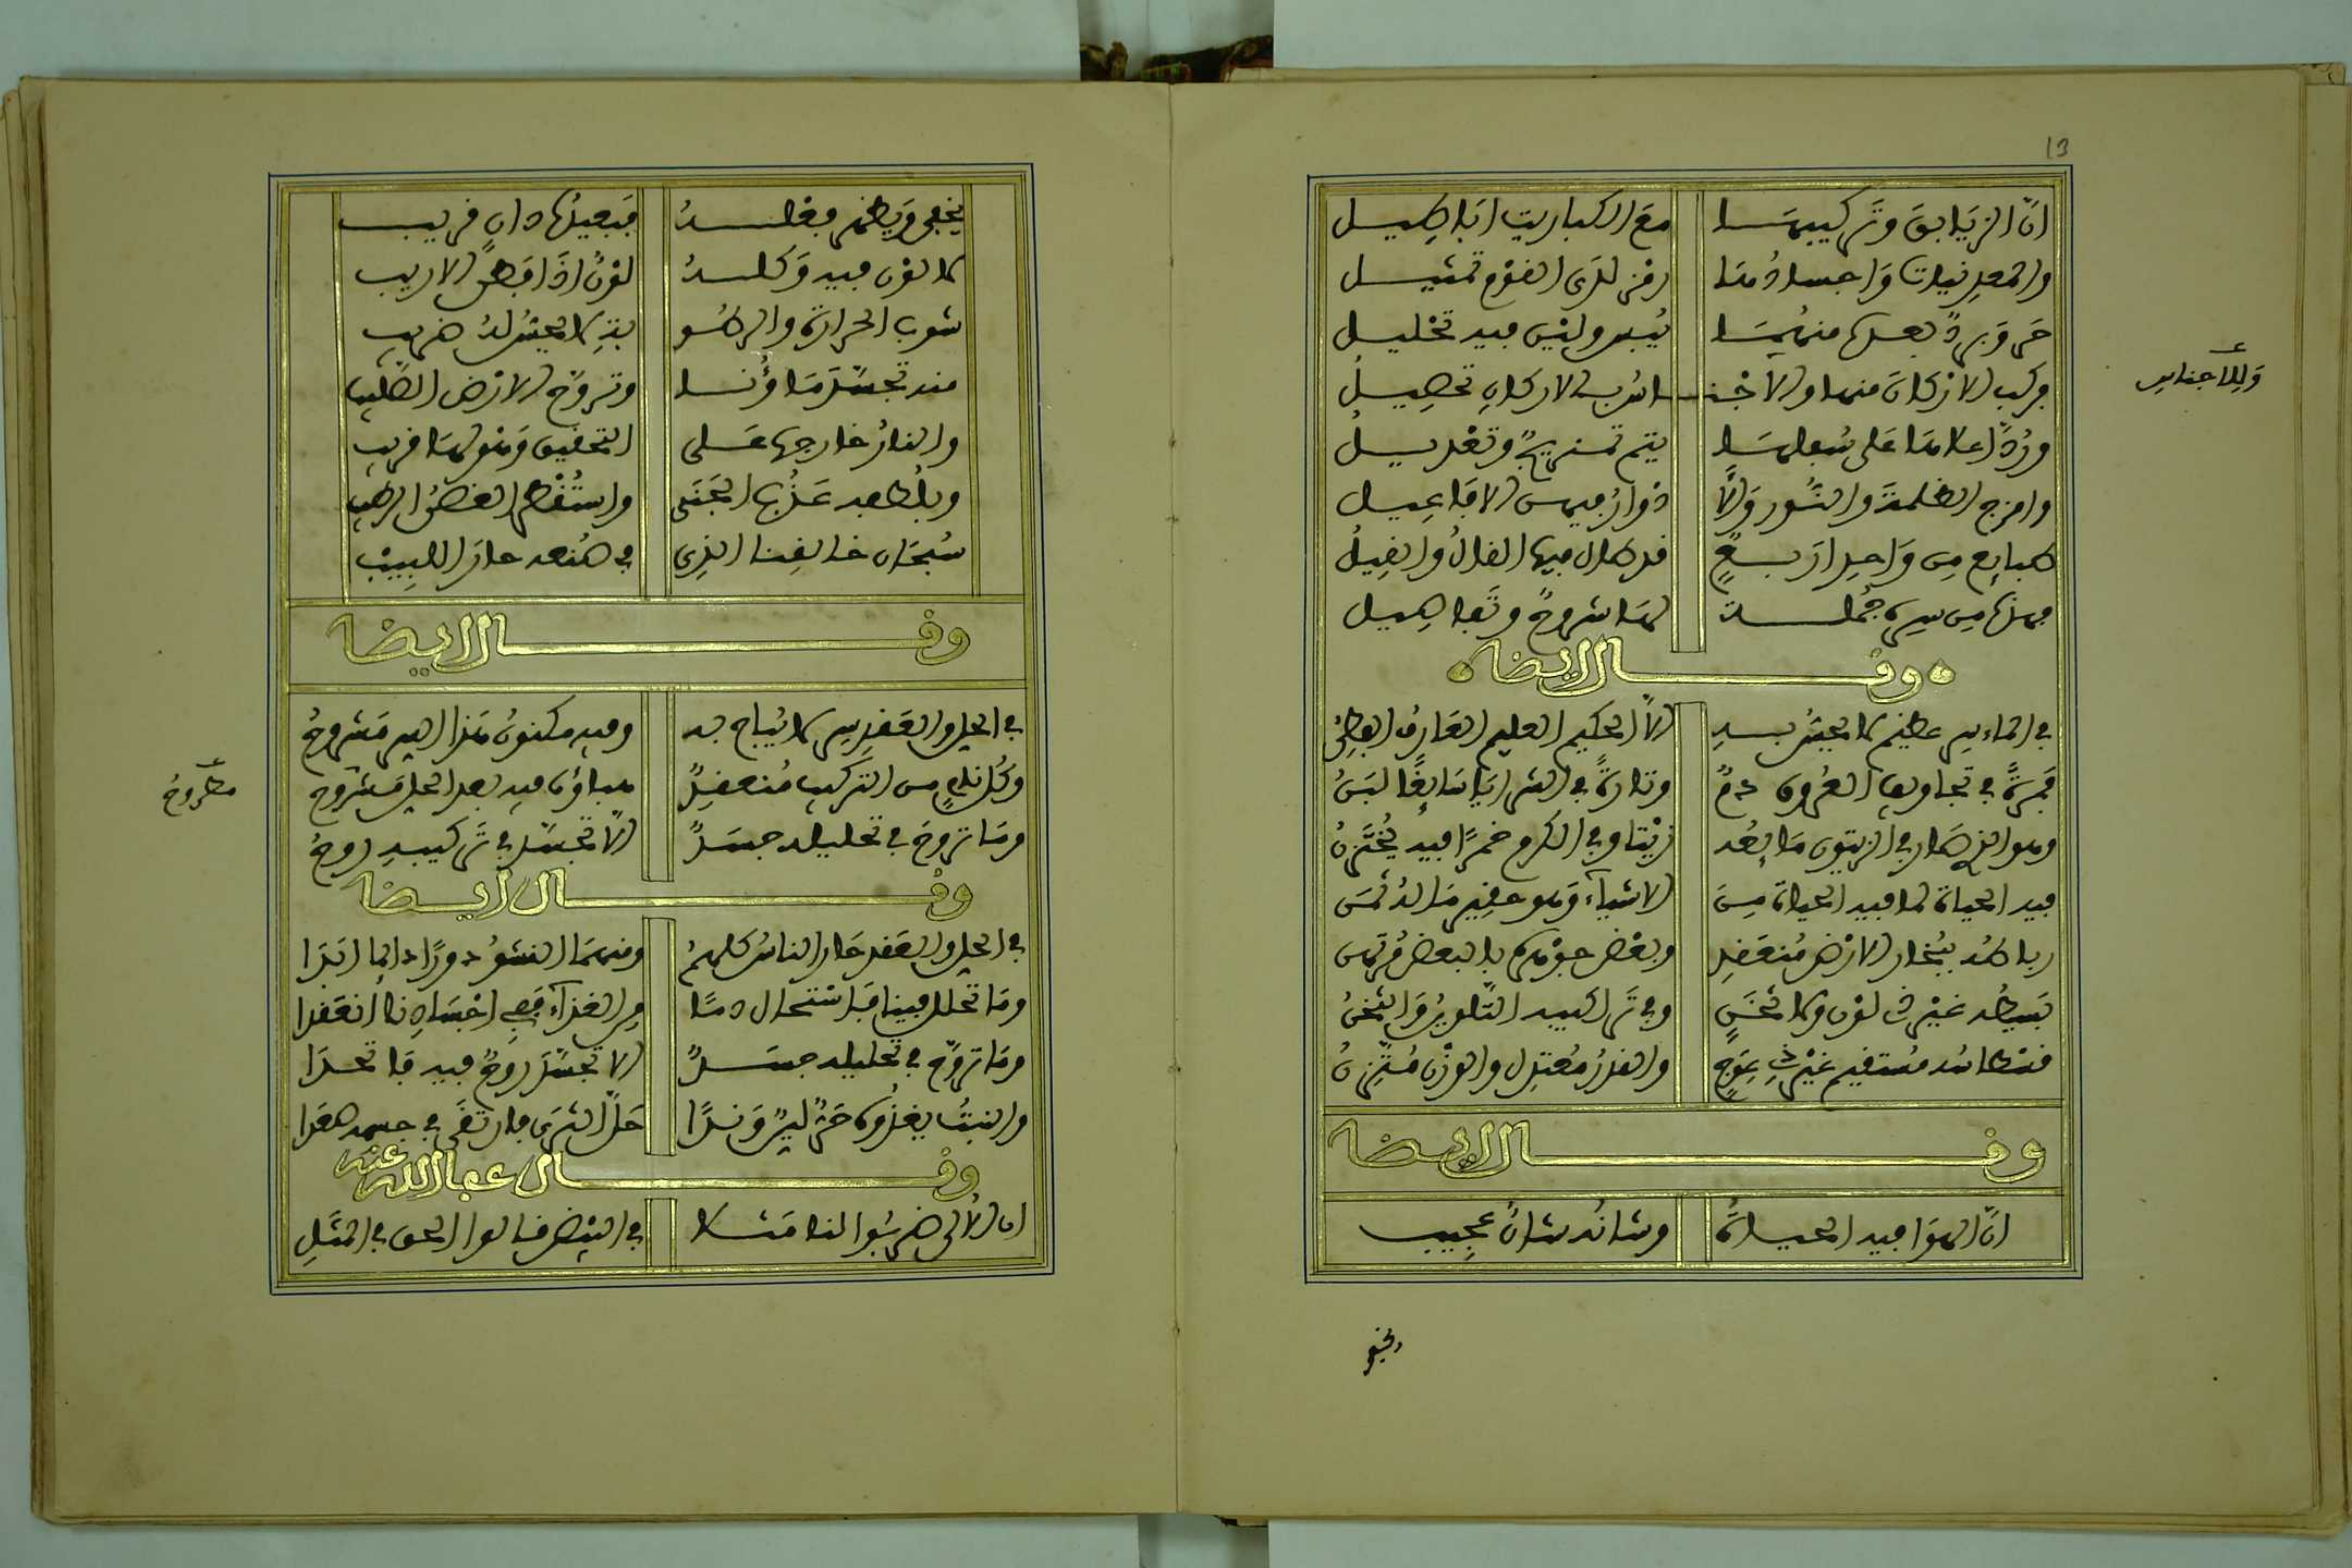 13
انّ الزيَابقَ وتَركيبهَا مَع الكباريت ابَاطيل
والمعدنيات وَاجسادُهَا رمْز لدَى القوْم تمثيل
حَر وَبردٌ بعدها منهمَا يُبس وليْس فيه تخليل
فركب الارْكان منها والاجْناسُ بالاركان تحصِيل
ورُدّ اعلاهَا عَلى سُفلهَا يتم تمزيجٌ وتعْديل
وامزج الظلمةَ والنّور وَالّا ذواتُ فيهن الافَاعِيل
طبايع مِن وَاحد ارْبعٍ قد طال فيها القالُ والقِيلُ
فهذه مِن سرهِ جُملة لهَا شروحٌ وتَفاصِيل
وقال ايضا
في الماء سر عظيم لا يحيطُ به الّا الحكيم العليم العَارف الفطِنُ
فمرّةً في تجاويف العُروق دمٌ وتارةً في الثدايَا سَايغًا لبَنُ
وهو الذي صَار في الزيتون مَا بِعُد زيْتا وفي الكرم خمرًا فيه يُختزنُ
فيه الحياة لما فيه الحياة مِنَ الاشياء وَهو حقير مَا له ثمَن
رباطه ببُخار الارْض مُنعَقد وبعْض جوْهره بالبعض مُرتهن
بَسيطه غيْر ذي لوْن ولا ثخَنٍ وفي تَراكيبه التّلوينُ وَالثخنُ
قسْطاسه مستقيم غيْر ذي عِوَجٍ والقدرُ مُعتدل والوزن مُتّزنُ
وقال ايضا
انّ الهوَا فيه الحياةُ وشانُه شانٌ عجيب
يخفى
وَللاجناس
يخفى وَيظهر فعلهُ فبَعيدُهَا دانٍ قريب
لا لون فيه وَكلهُ لوْنٌ اذَا فَطنَ الاريب
شوب الحرارة والرطُوبة لا يحيطُ لهُ ضريب
منه تجسّد مَاؤُنا وتروّحَ الارْض الصّليب
والنارُ خارجها عَلى التحقيق وَهو لها قريب
وبلُطفه عَذُبَ الجَنَى واسْتُقْطِر الغصْنُ الرطيب
سُبحَان خالقِنا الذِي في صُنعه حارَ اللبِيبْ
وقال ايضا
في الحل والعَقد سر لا يُباح به وفيه مكنونُ هَذا السر مَشروحُ
وكل شيْءٍ من التركيب مُنعقدٌ مباؤه فيه بعد الحل مَشروح
ومَا تروحَ في تحليله جسَدٌ الّا تجسّد في تَركيبهِ روحُ
وقال ايضا
في الحل والعَقد حَار الناسُ كلهُمُ ومنهمَا النشوُ دورًا دايما ابَدَا
ومَا تحلل فينا فَاسْتحال دمًا مِن الغذآء ففي اجْسَادِنا انعَقدا
ومَا تروّحَ في تحليله جسَدٌ الا تجسّدَ روحٌ فيه فاتحدَا
والنبتُ يغذُوه حَرٌّ ليّنٌ وَندًا حَلّ الثرَى فارتقَى في جسمه صعَدا
وقال عفا الله عنه
ان الاُلى ضرَبُوا لنا مَثلا في البَيْض قالوا الحق في المثَلِ
مطروحُ